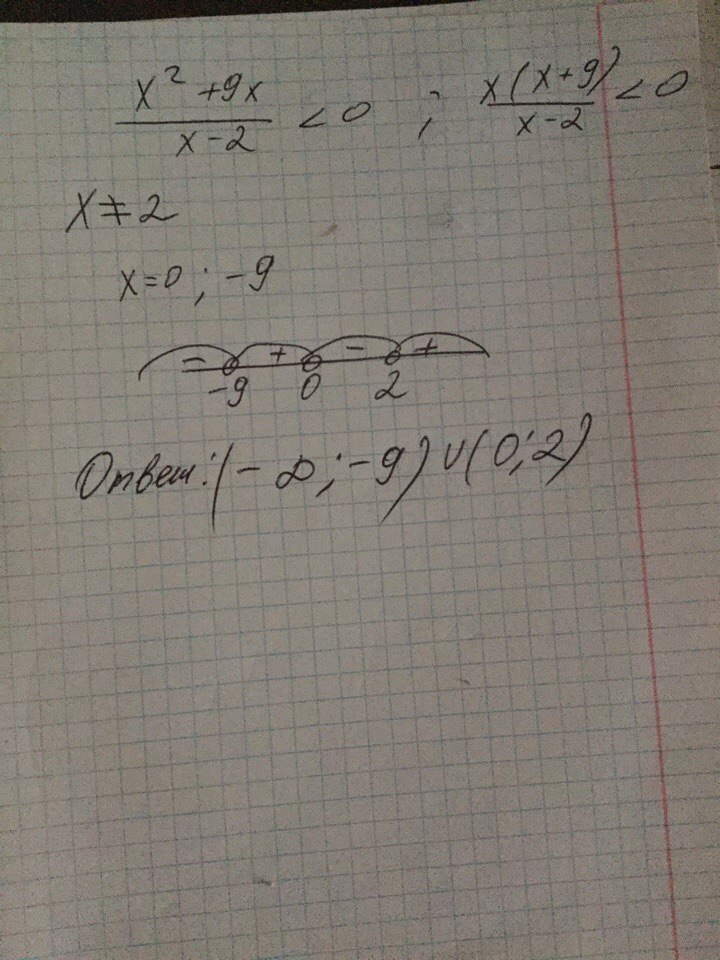 x² + 9x / x - 2 < 0 ; x(x+9) / x - 2 < 0
x ≠ 2
x = 0 ; -9
- + - +
-9 0 2
Ответ: (-∞; -9) ∪ (0; 2)